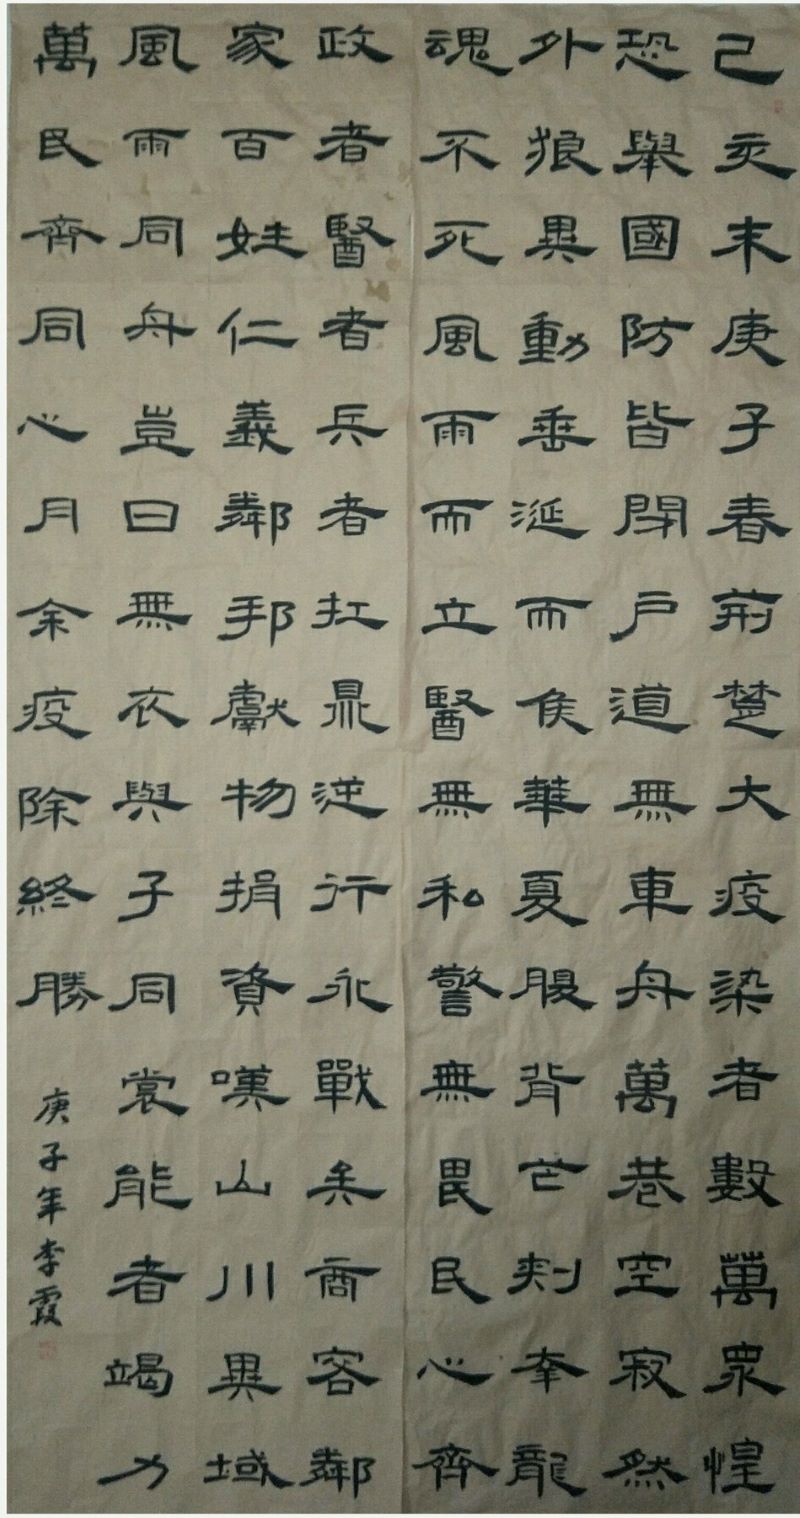 己亥末庚子春荊楚大疫染者數萬眾惶
恐舉國防皆閉戶道無車舟萬巷空寂然
外狼異動垂涎而侯華夏腹背芒刺幸龍
魂不死風雨而立醫無私警無畏民心齊
政者醫者兵者扛鼎逆行永戰矣商客鄰
家百姓仁義鄰邦獻物捐資嘆山川異域
風雨同舟豈曰無衣與子同裳能者竭力
萬民齊同心月余疫除終勝
庚子年李霞